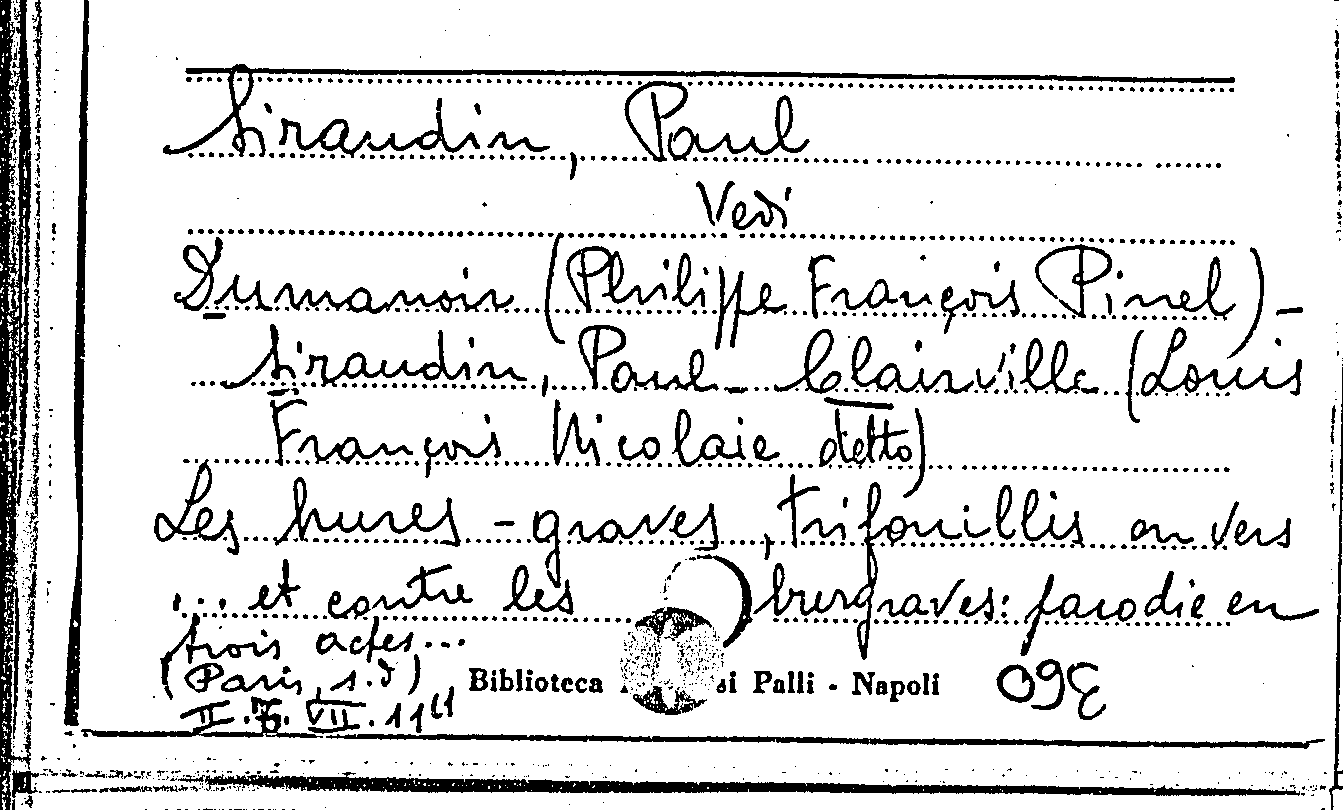 Siraudin, Paul
Vedi
Dumanoir (Philippe François Pinel) -
Siraudin, Paul - Clairville (Louis
François Nicolaie detto)
Les hures - graves, trifouillis en vers
... et contre les burgraves: parodie en
trois actes...
(Paris, s.d)
Biblioteca si Palli - Napoli
II. VII. 11